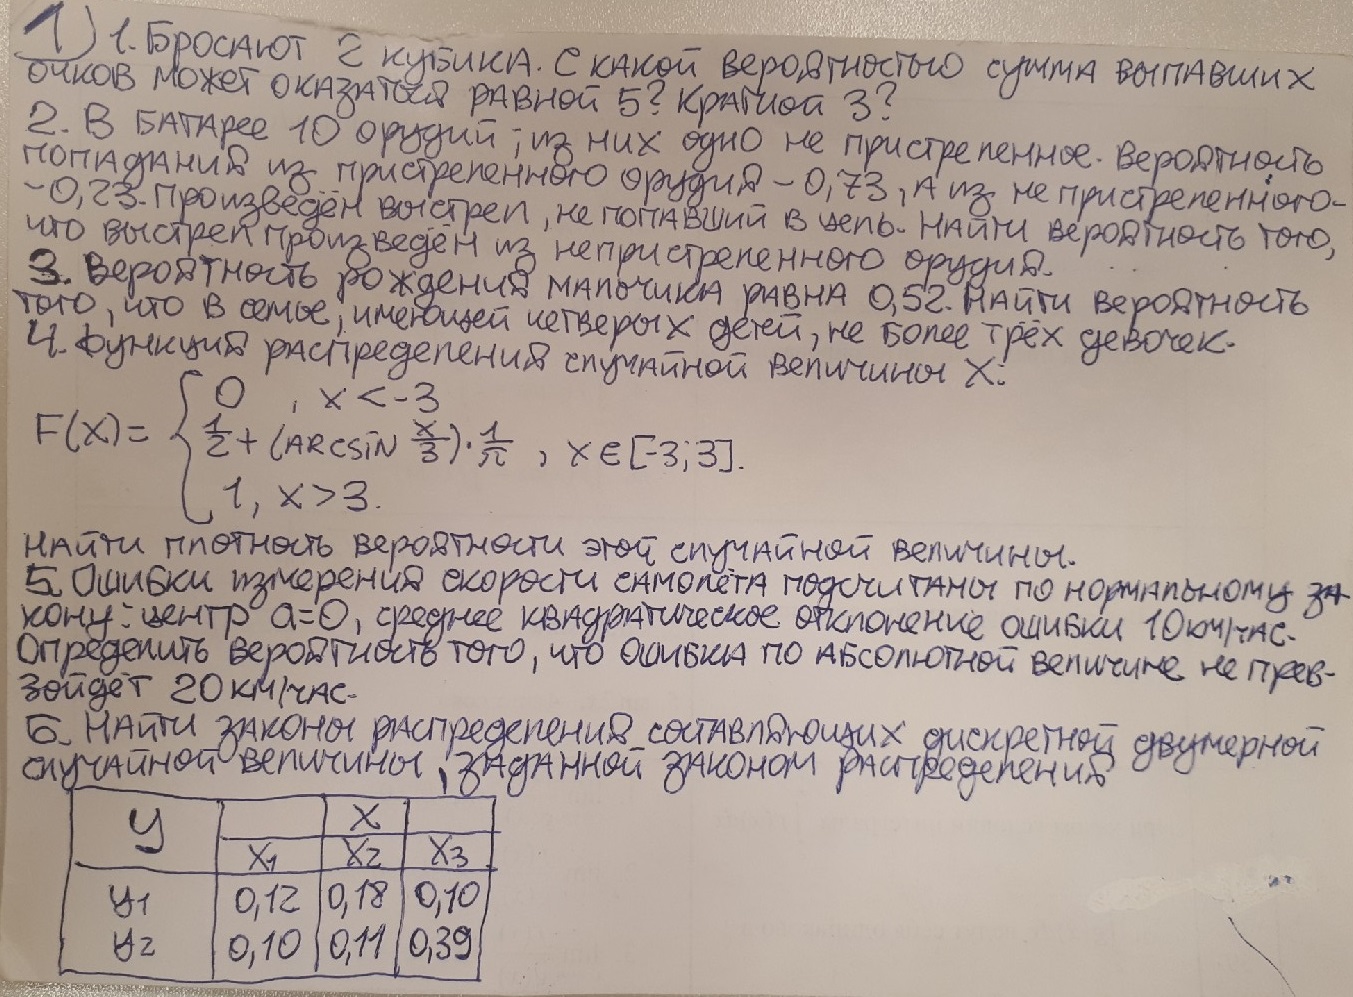 1) 1. Бросают 2 кубика. С какой вероятностью сумма выпавших
очков может оказаться равной 5? Кратной 3?
2. В батарее 10 орудий; из них одно не пристреленное. Вероятность
попадания из пристреленного орудия - 0,73, а из не пристреленного-
- 0,23. Произведён выстрел, не попавший в цель. Найти вероятность того,
что выстрел произведён из непристреленного орудия.
3. Вероятность рождения мальчика равна 0,52. Найти вероятность
того, что в семье, имеющей четверых детей, не более трёх девочек.
4. Функция распределения случайной величины X:
F(x) = { 0 , x < -3
1/2 + (arcsin x/3) · 1/π , x ∈ [-3; 3].
1, x > 3.
Найти плотность вероятности этой случайной величины.
5. Ошибки измерения скорости самолёта подсчитаны по нормальному за-
кону: центр a=0, среднее квадратическое отклонение ошибки 10 км/час.
Определить вероятность того, что ошибка по абсолютной величине не прев-
зойдёт 20 км/час.
6. Найти законы распределения составляющих дискретной двумерной
случайной величины, заданной законом распределения
y X
x1 x2 x3
y1 0,12 0,18 0,10
y2 0,10 0,11 0,39